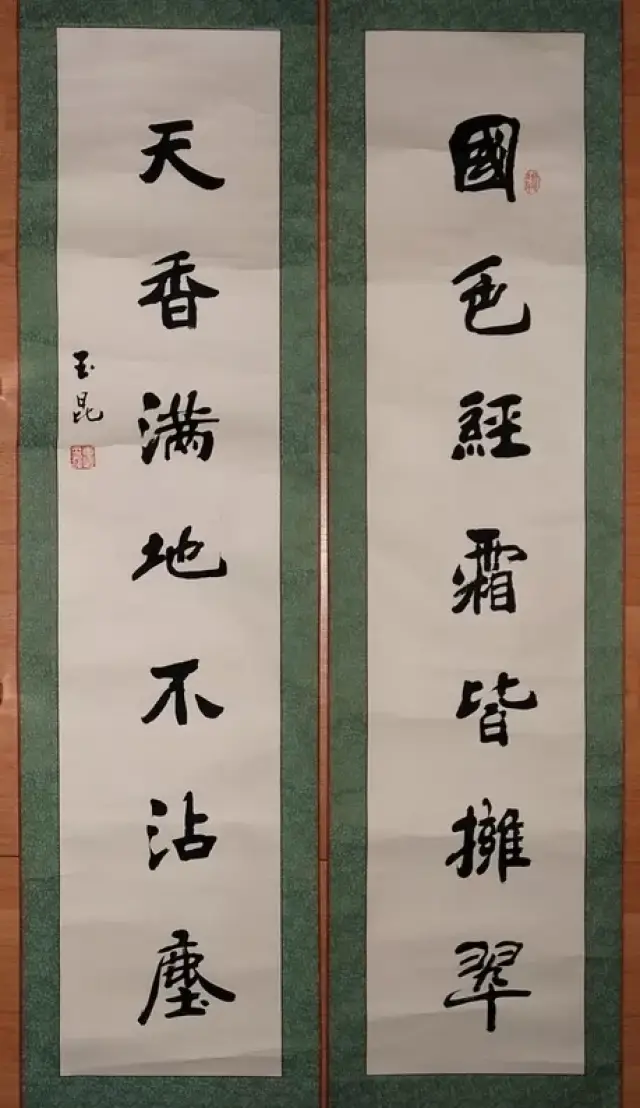 國色經霜皆擁翠
天香满地不沾塵
玉昆